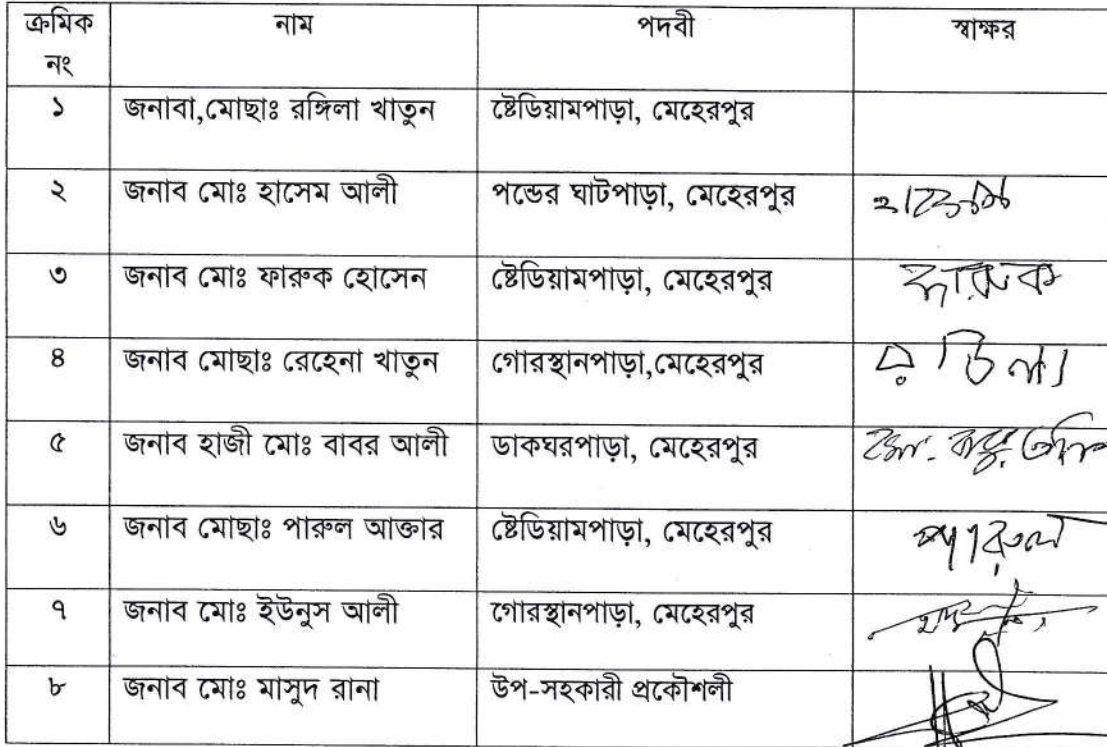 ক্রমিক নং নাম পদবী স্বাক্ষর
১ জনাবা,মোছাঃ রঙ্গিলা খাতুন ষ্টেডিয়ামপাড়া, মেহেরপুর
২ জনাব মোঃ হাসেম আলী পন্ডের ঘাটপাড়া, মেহেরপুর
৩ জনাব মোঃ ফারুক হোসেন ষ্টেডিয়ামপাড়া, মেহেরপুর ফারুক
৪ জনাব মোছাঃ রেহেনা খাতুন গোরস্থানপাড়া,মেহেরপুর
৫ জনাব হাজী মোঃ বাবর আলী ডাকঘরপাড়া, মেহেরপুর
৬ জনাব মোছাঃ পারুল আক্তার ষ্টেডিয়ামপাড়া, মেহেরপুর পারুল
৭ জনাব মোঃ ইউনুস আলী গোরস্থানপাড়া, মেহেরপুর
৮ জনাব মোঃ মাসুদ রানা উপ-সহকারী প্রকৌশলী